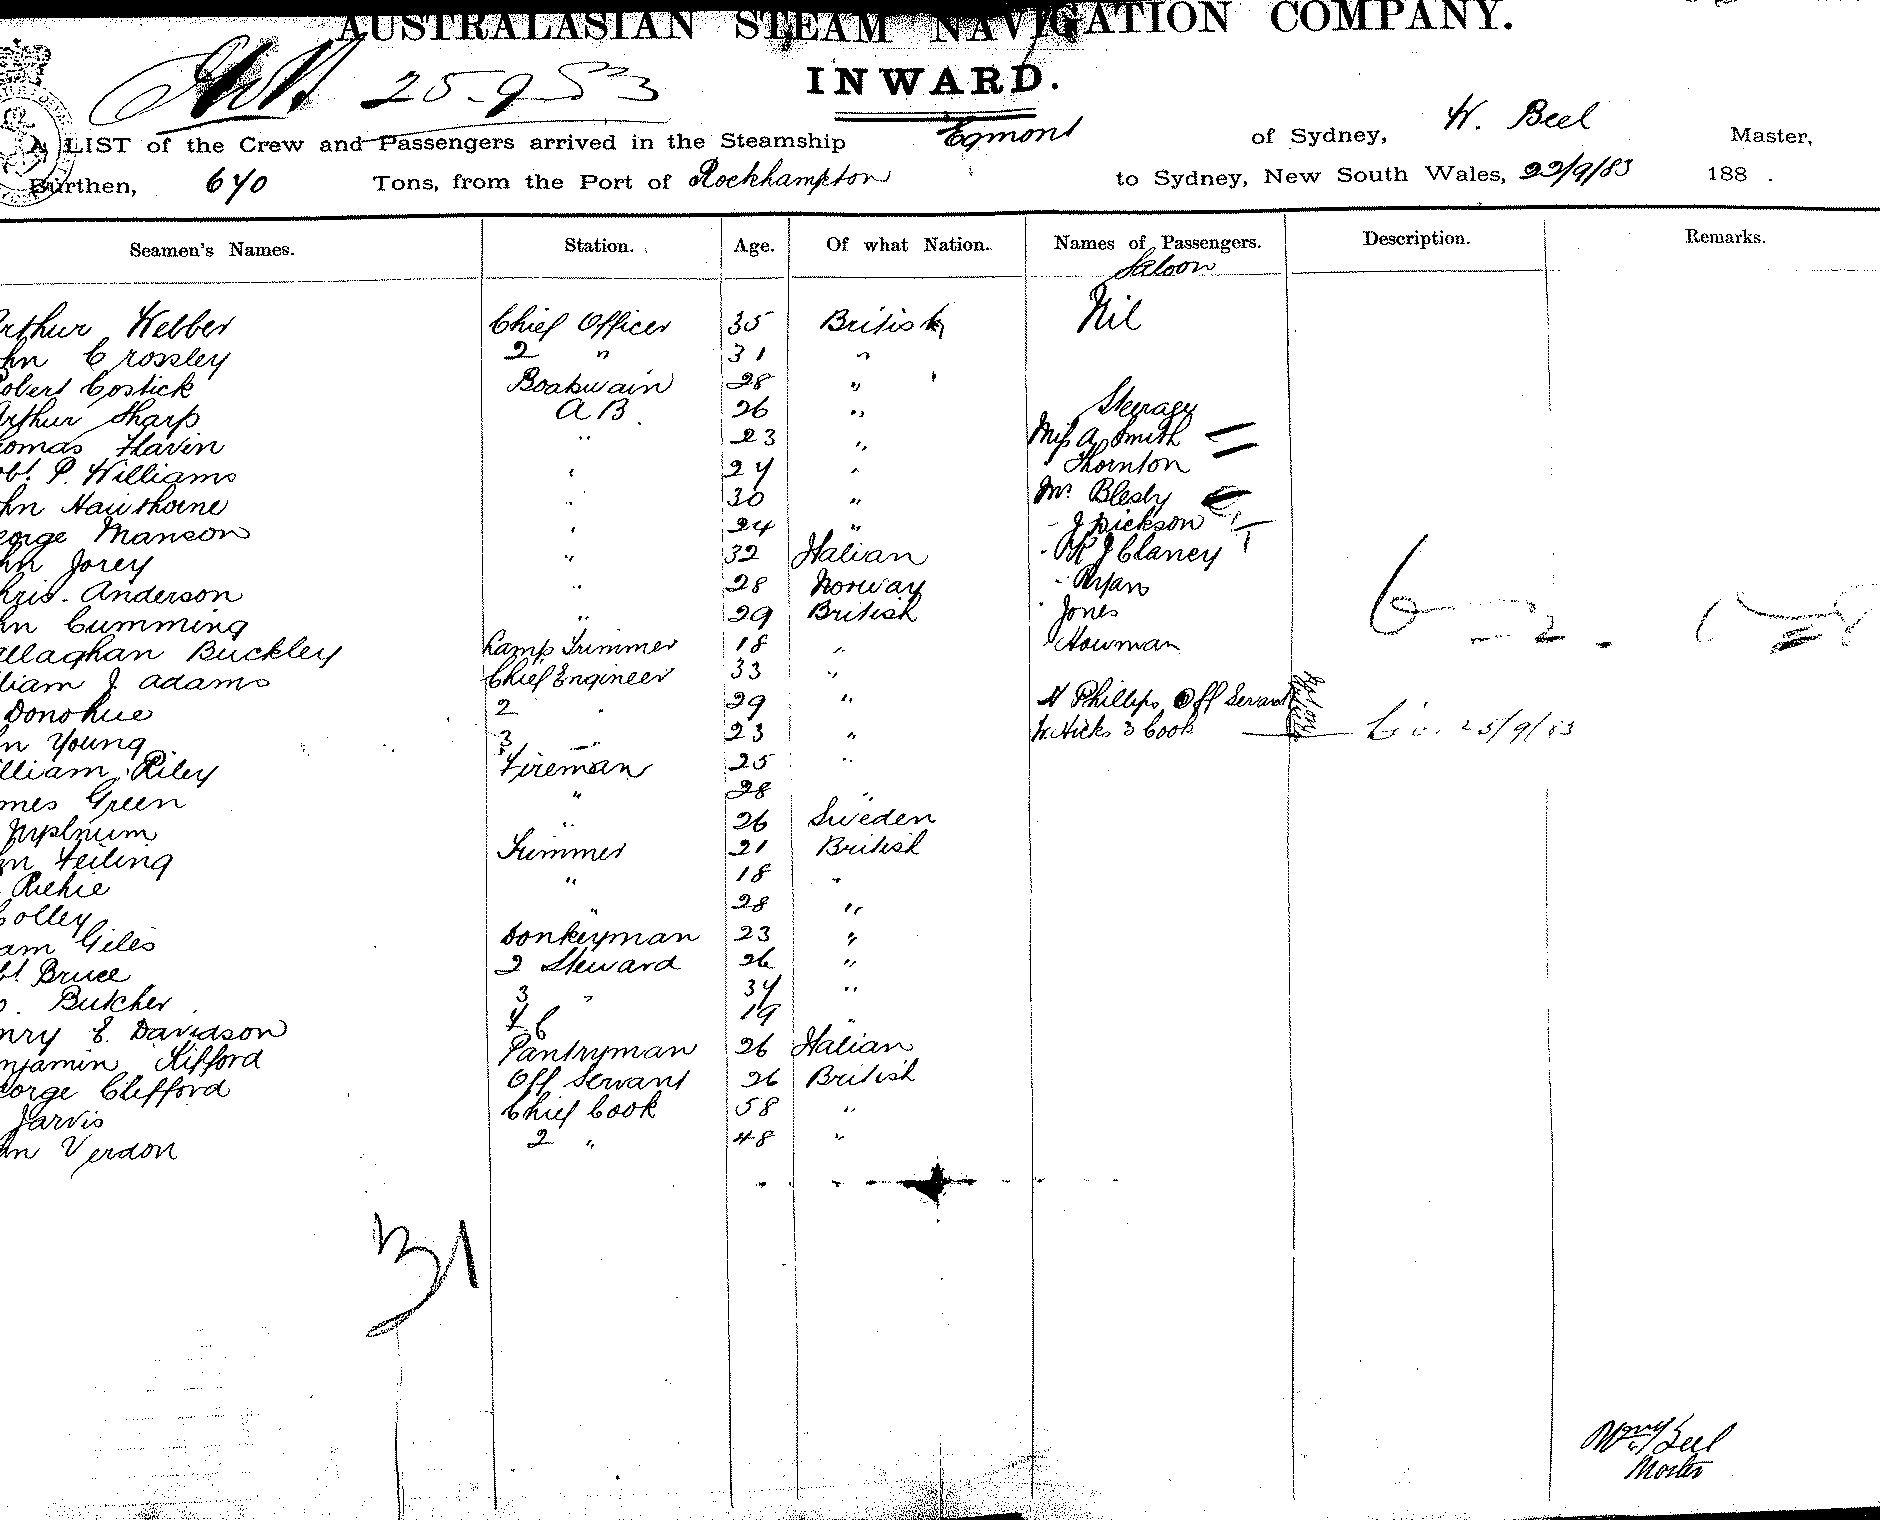 AUSTRALASIAN STEAM NAVIGATION COMPANY.
25.9.83
INWARD.
A LIST of the Crew and Passengers arrived in the Steamship Egmont of Sydney, W. Beel Master,
Burthen, 670 Tons, from the Port of Rockhampton to Sydney, New South Wales, 22/9/83 188 .
Seamen's Names. Station. Age. Of what Nation. Names of Passengers. Description. Remarks.
Saloon
rthur Webber Chief Officer 35 British Nil
hn Crossley 2 " 31 "
obert Costick Boatswain 28 "
rthur Sharp A B 26 " Steerage
homas Flavin " 23 " Miss A Smith
obt. P. Williams " 27 " " Thornton
hn Hawthorne " 30 " Mr Blesby
eorge Manson " 24 " - J Dickson
hn Jorey " 32 Italian - J Clancy
hris. Anderson " 28 Norway - Ryan
hn Cumming " 29 British " Jones
allaghan Buckley Lamp Trimmer 18 " " Howman
liam J Adams Chief Engineer 33 "
Donohue 2 " 29 " H Phillips Off Servant
hn Young 3 " 23 " W. Hicks 3 Cook 25/9/83
illiam Riley Fireman 25 "
mes Green " 28 "
" 26 Sweden
hn Feiling Trimmer 21 British
Richie " 18 "
Colley " 28 "
am Giles Donkeyman 23 "
bt. Bruce 2 Steward 26 "
o. Butcher 3 " 37 "
nry E. Davidson 19 "
njamin Kifford Pantryman 26 Italian
eorge Clifford Off Servant 26 British
Jarvis Chief Cook 58 "
hn Verdon 2 " 48 "
31
Wm Beel
Master